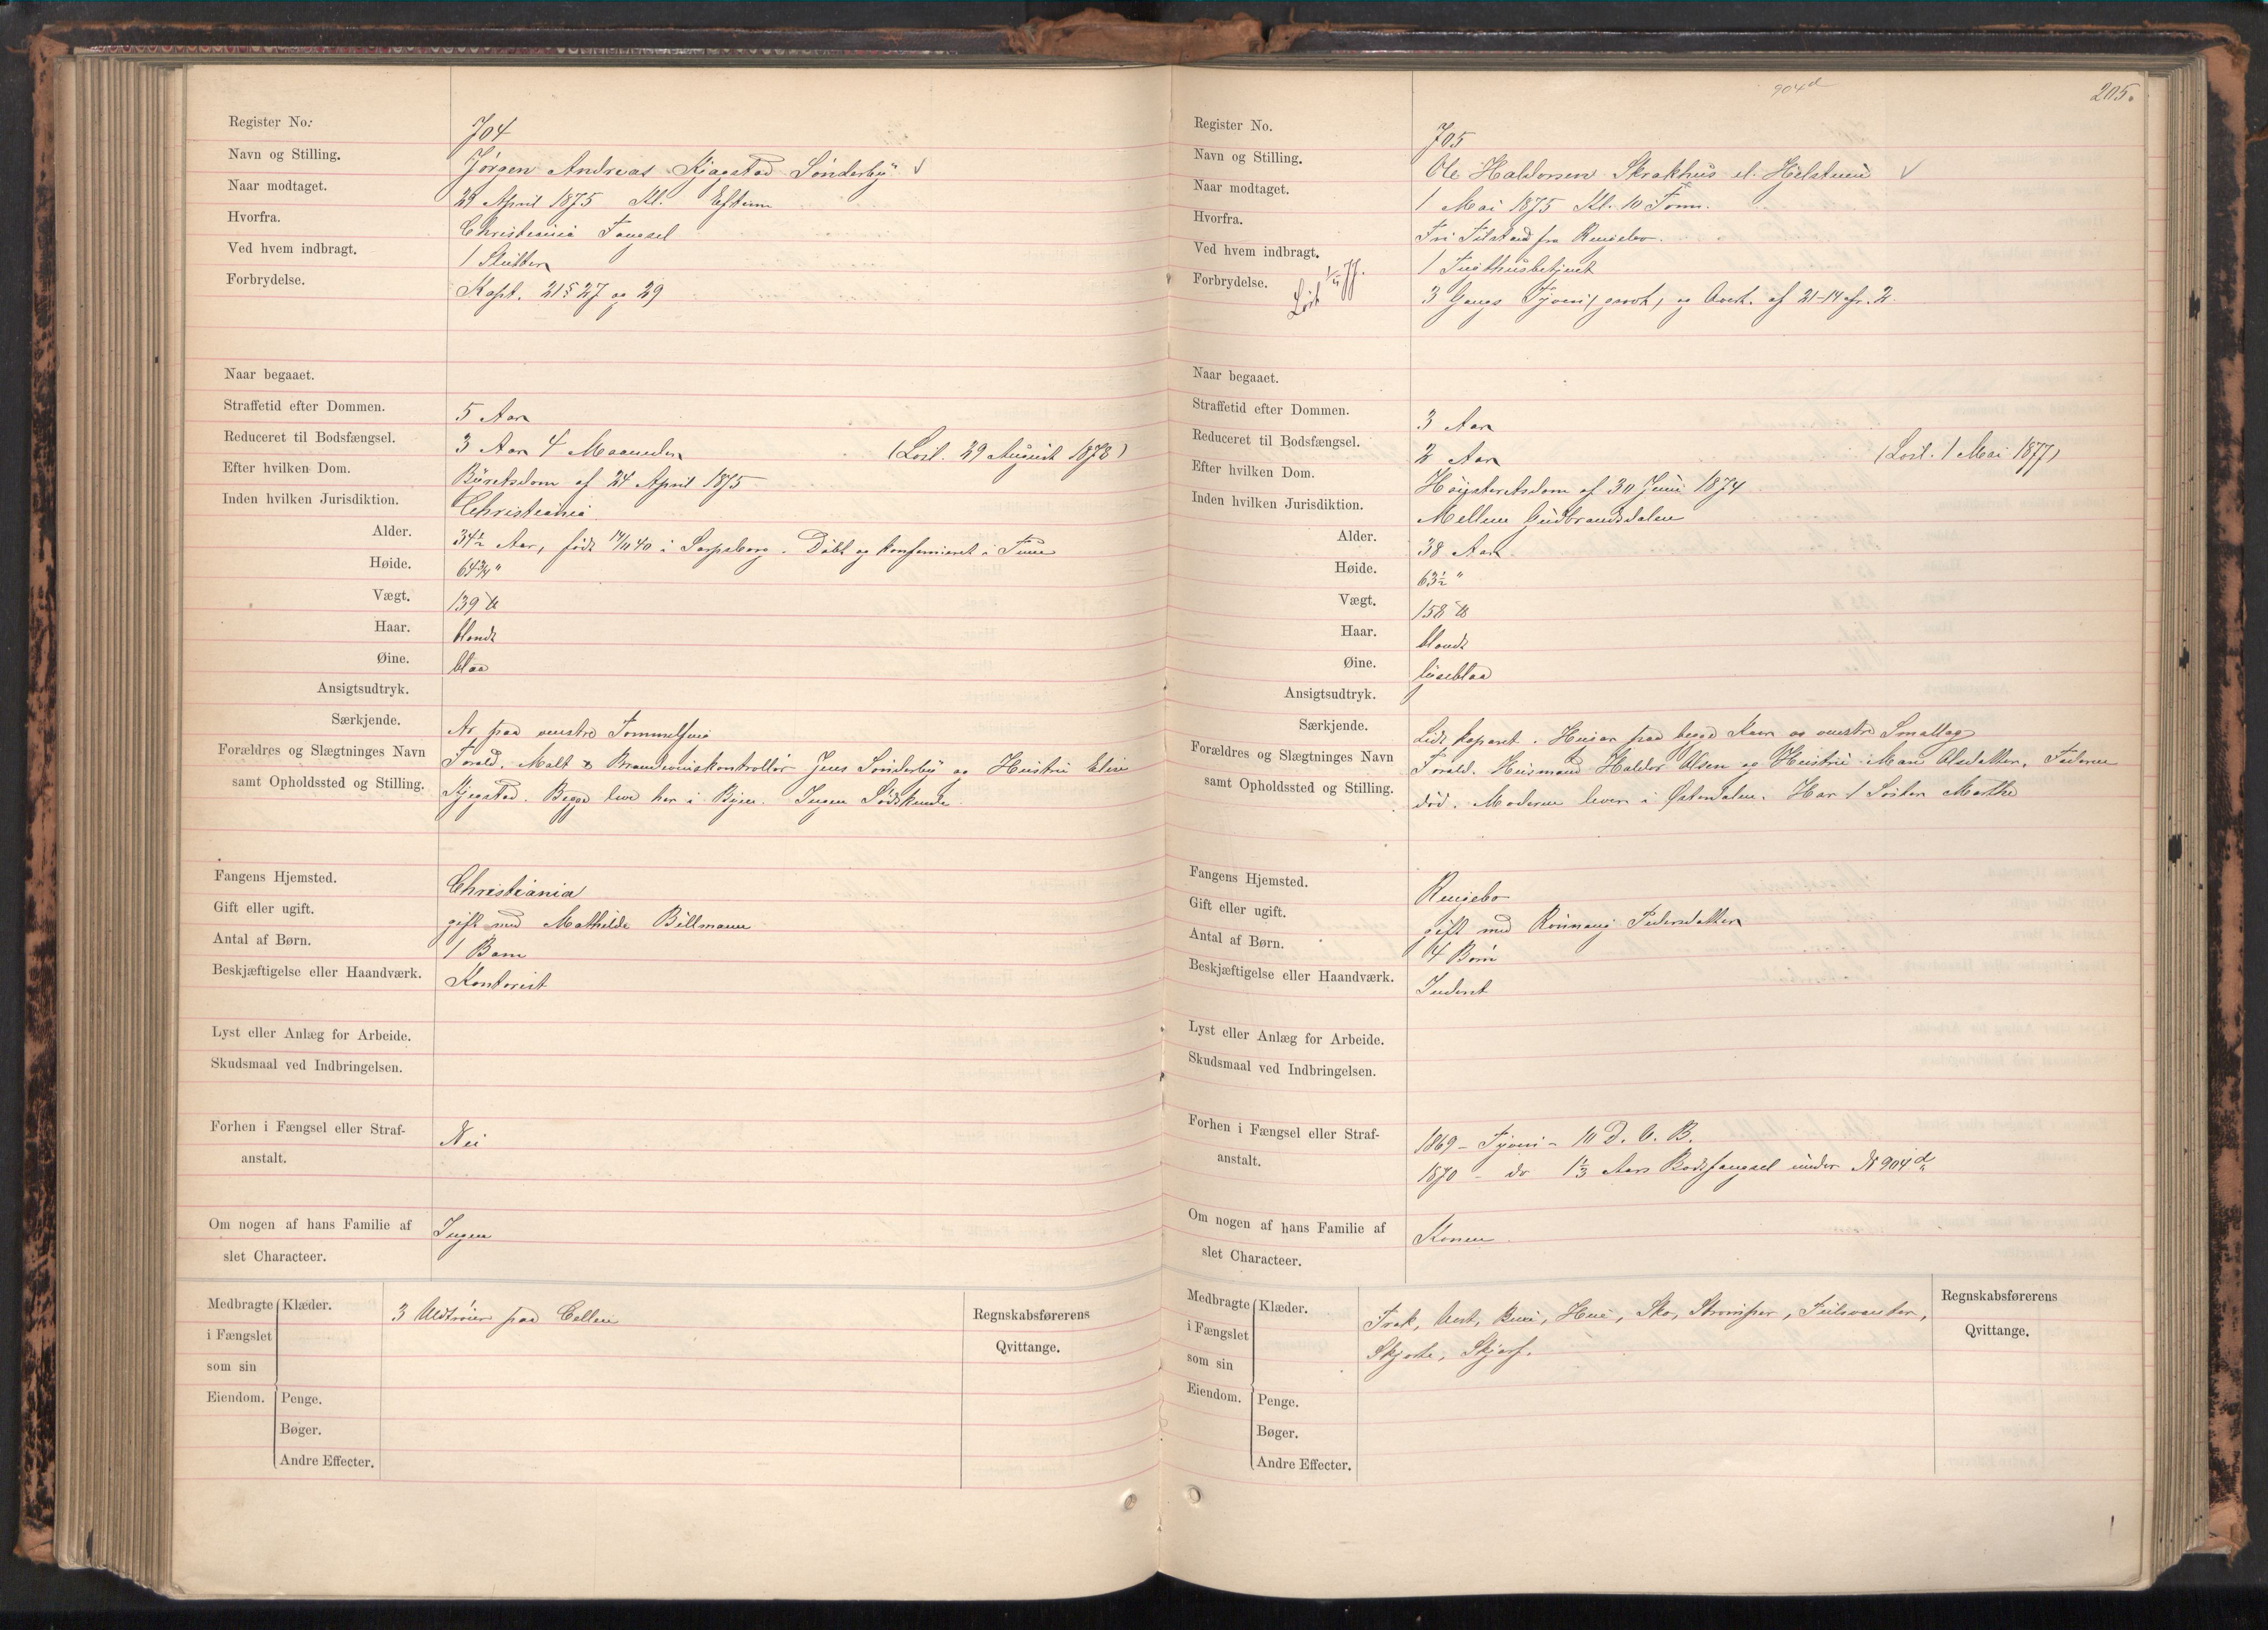 Register No: 704
Navn og Stilling. Jørgen Andreas Kjagstad Sønderby
Naar modtaget. 29 April 1875 Kl. Efterm
Hvorfra. Christiania Fængsel
Ved hvem indbragt. 1 Slutter
Forbrydelse. Kapt. 21 § 27 og 29
Naar begaaet.
Straffetid efter Dommen. 5 Aar
Reduceret til Bodsfængsel. 3 Aar 4 Maaneder (Løsl. 29 August 1878)
Efter hvilken Dom. Byretsdom af 24 April 1875
Inden hvilken Jurisdiktion. Christiania
Alder. 34½ Aar, født 40 i Sarpsborg. Døbt og konfirmeret i Tune
Høide. 64¾"
Vægt. 139 ℔
Haar. blondt
Øine. blaa
Ansigtsudtryk.
Særkjende. Ar paa venstre Tommelfinger
Forældres og Slægtninges Navn Foræld. Malt & Brændevinskontrollør Jens Sønderby og Hustru Elise
samt Opholdssted og Stilling. Kjegstad. Begge leve her i Byen. Ingen Sødskende.
Fangens Hjemsted. Christiania
Gift eller ugift. gift med Mathilde Billmann
Antal af Børn. 1 Barn
Beskjæftigelse eller Haandværk. Kontorist
Lyst eller Anlæg for Arbeide.
Skudsmaal ved Indbringelsen.
Forhen i Fængsel eller Straf- Nei
anstalt.
Om nogen af hans Familie af Ingen
slet Characteer.
Medbragte Klæder. 3 Uldtrøier paa Cellen Regnskabsførerens
i Fængslet Qvittange.
som sin
Eiendom. Penge.
Bøger.
Andre Effecter.
904d 205.
Register No. 705
Navn og Stilling. Ole Haldorsen Skrakhus el. Hjelstuen
Naar modtaget. 1 Mai 1875 Kl. 10 Form.
Hvorfra. Fri Tilstand fra Ringebo.
Ved hvem indbragt. 1 Tugthusbetjent
Forbrydelse. Løsl 1/5 77. 3 Gangs Tyveri, grovt, og Overt. af 21-14 cfr. 2.
Naar begaaet.
Straffetid efter Dommen. 3 Aar
Reduceret til Bodsfængsel. 2 Aar (Løsl. 1 Mai 1877)
Efter hvilken Dom. Høiesteretsdom af 30 Juni 1874
Inden hvilken Jurisdiktion. Mellem Gudbrandsdalen
Alder. 38 Aar
Høide. 63½"
Vægt. 158 ℔
Haar. blondt
Øine. lyseblaa
Ansigtsudtryk.
Særkjende. Lidt koparet. Hugar paa begge Knær og venstre Smallæg
Forældres og Slægtninges Navn Foræld. Husmand Haldor Olsen og Hustru Mari Olsdatter. Faderen
samt Opholdssted og Stilling. død. Moderen lever i Østerdalen. Har 1 Søster Marthe
Fangens Hjemsted. Ringebo
Gift eller ugift. gift med Rønnaug Pedersdatter
Antal af Børn. 4 Børn
Beskjæftigelse eller Haandværk. Inderst
Lyst eller Anlæg for Arbeide.
Skudsmaal ved Indbringelsen.
Forhen i Fængsel eller Straf- 1869 – Tyveri – 10 D. V. B.
anstalt. 1870 – do 1⅓ Aars Bodsfængsel under № 904d
Om nogen af hans Familie af Konen
slet Characteer.
Medbragte Klæder. Frak, Vest, Buxe, Hue, Sko, Strømper, Pulsvanter, Regnskabsførerens
i Fængslet Skjorte, Skjærf. Qvittange.
som sin
Eiendom. Penge.
Bøger.
Andre Effecter.